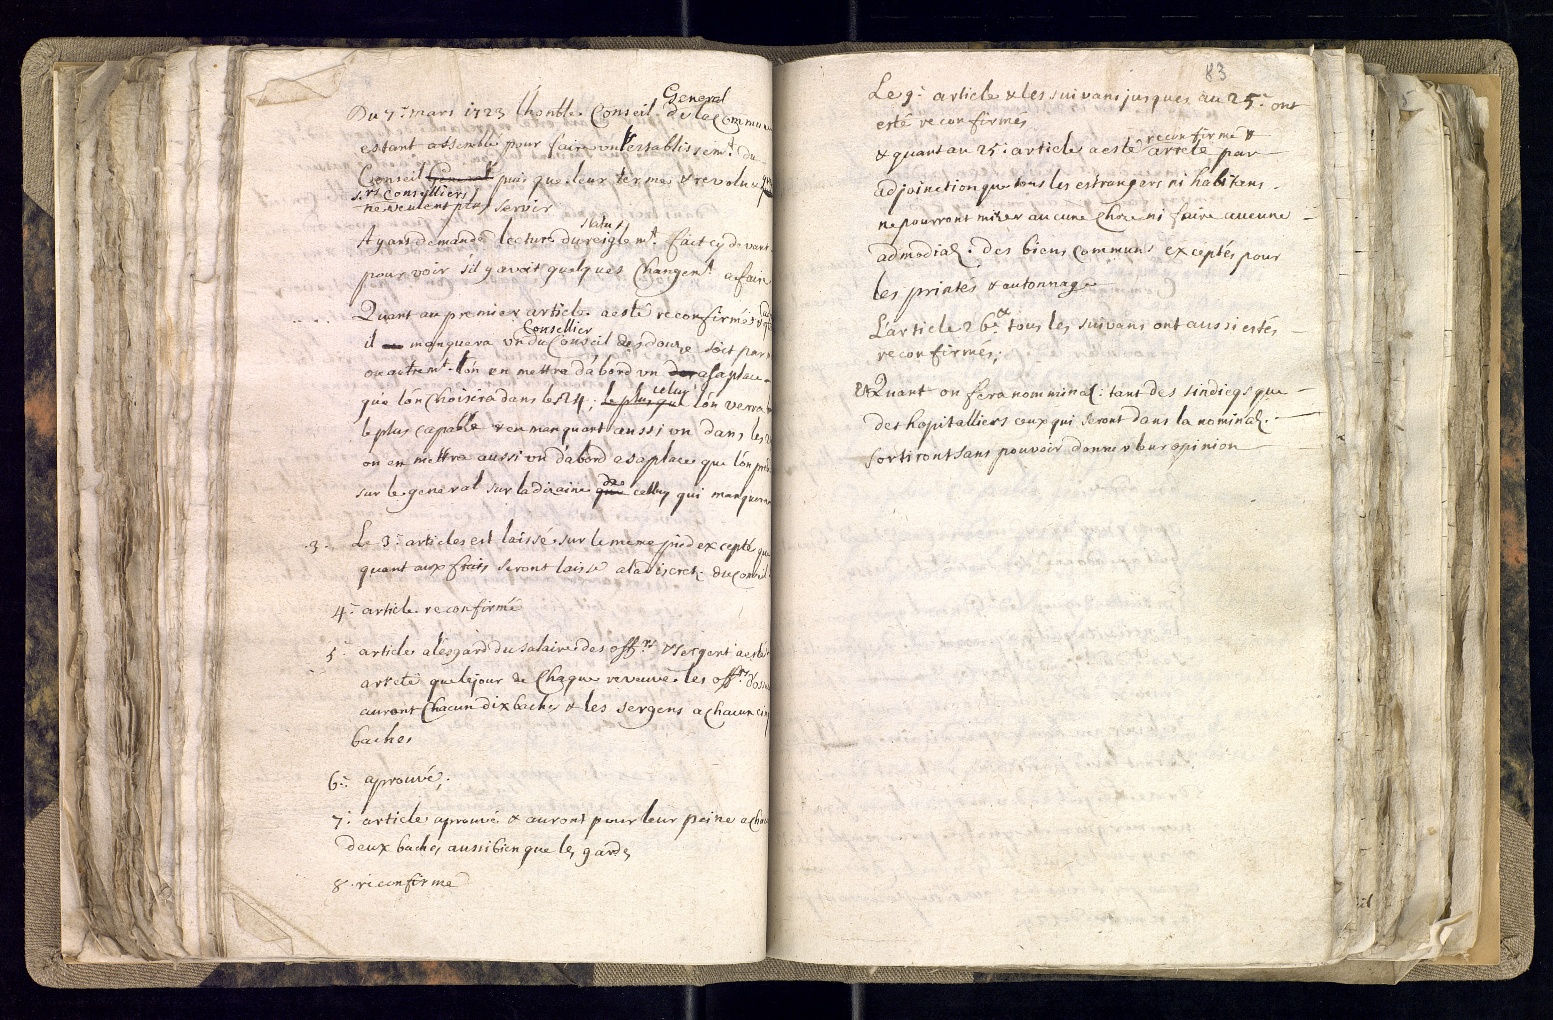 General
Du 7.e mars 1723 lhonble Conseil de la Commune
estant assemblé pour faire vn establissemt. du
Conseil General puis que leur terme est revolu & que
srs Conselliers
ne veulent plus servir
status
Ayans demandé lecture du reiglemt. fait cy devant
pour voir s'il y avoit quelques changent. a faire
Quant au premier article a esté reconfirmé & que
Consellier
il manquera vn du Conseil des douze soit par
ou autremt. l'on en mettra d'abord vn a sa place
celuy
que l'on choisira dans les 24; le plus que l'on verra
le plus capable & en manquant aussi vn dans les
on en mettra aussi vn d'abord a sa place que l'on
de
sur le general sur la diziaine que celluy qui manquera
3 Le 3.e article est laissé sur le meme pied excepté que
quant aux frais seront laissé a la discret. du Conseil
4.e article reconfirmé
5.e article a l'esgard du salaire des offrs. & sergent a esté
arreté que le jour de chaque reveuve les offrs.
auront chacun dix baches & les sergens a chacun cinq
baches
6.e aprouvé;
7.e article aprouvé & auront pour leur peine a
deux baches aussi bien que les gardes
8. reconfirmé
83
Le 9.e article & les suivans jusques au 25.e ont
esté reconfirmés
reconfirmé &
& quant au 25.e article a esté arreté par
adjoinction que tous les estrangers ni habitans
ne pourront mizer aucune choze ni faire aucune
admodia~. des biens communs exceptés pour
les printés & autonnage
L'article 26.e & tous les suivans ont aussi estés
reconfirmés;
& Quant on fera nomina~: tant des sindicqs que
des hopitalliers ceux qui seront dans la nomina~.
sortiront sans pouvoir donner leur opinion